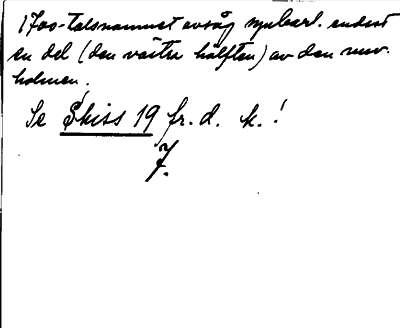 1700-talsnamnet avsåg synbarl. endast
en del (den västra hälften) av den nuv.
holmen.
Se Skiss 19 fr. d. k.!
J.